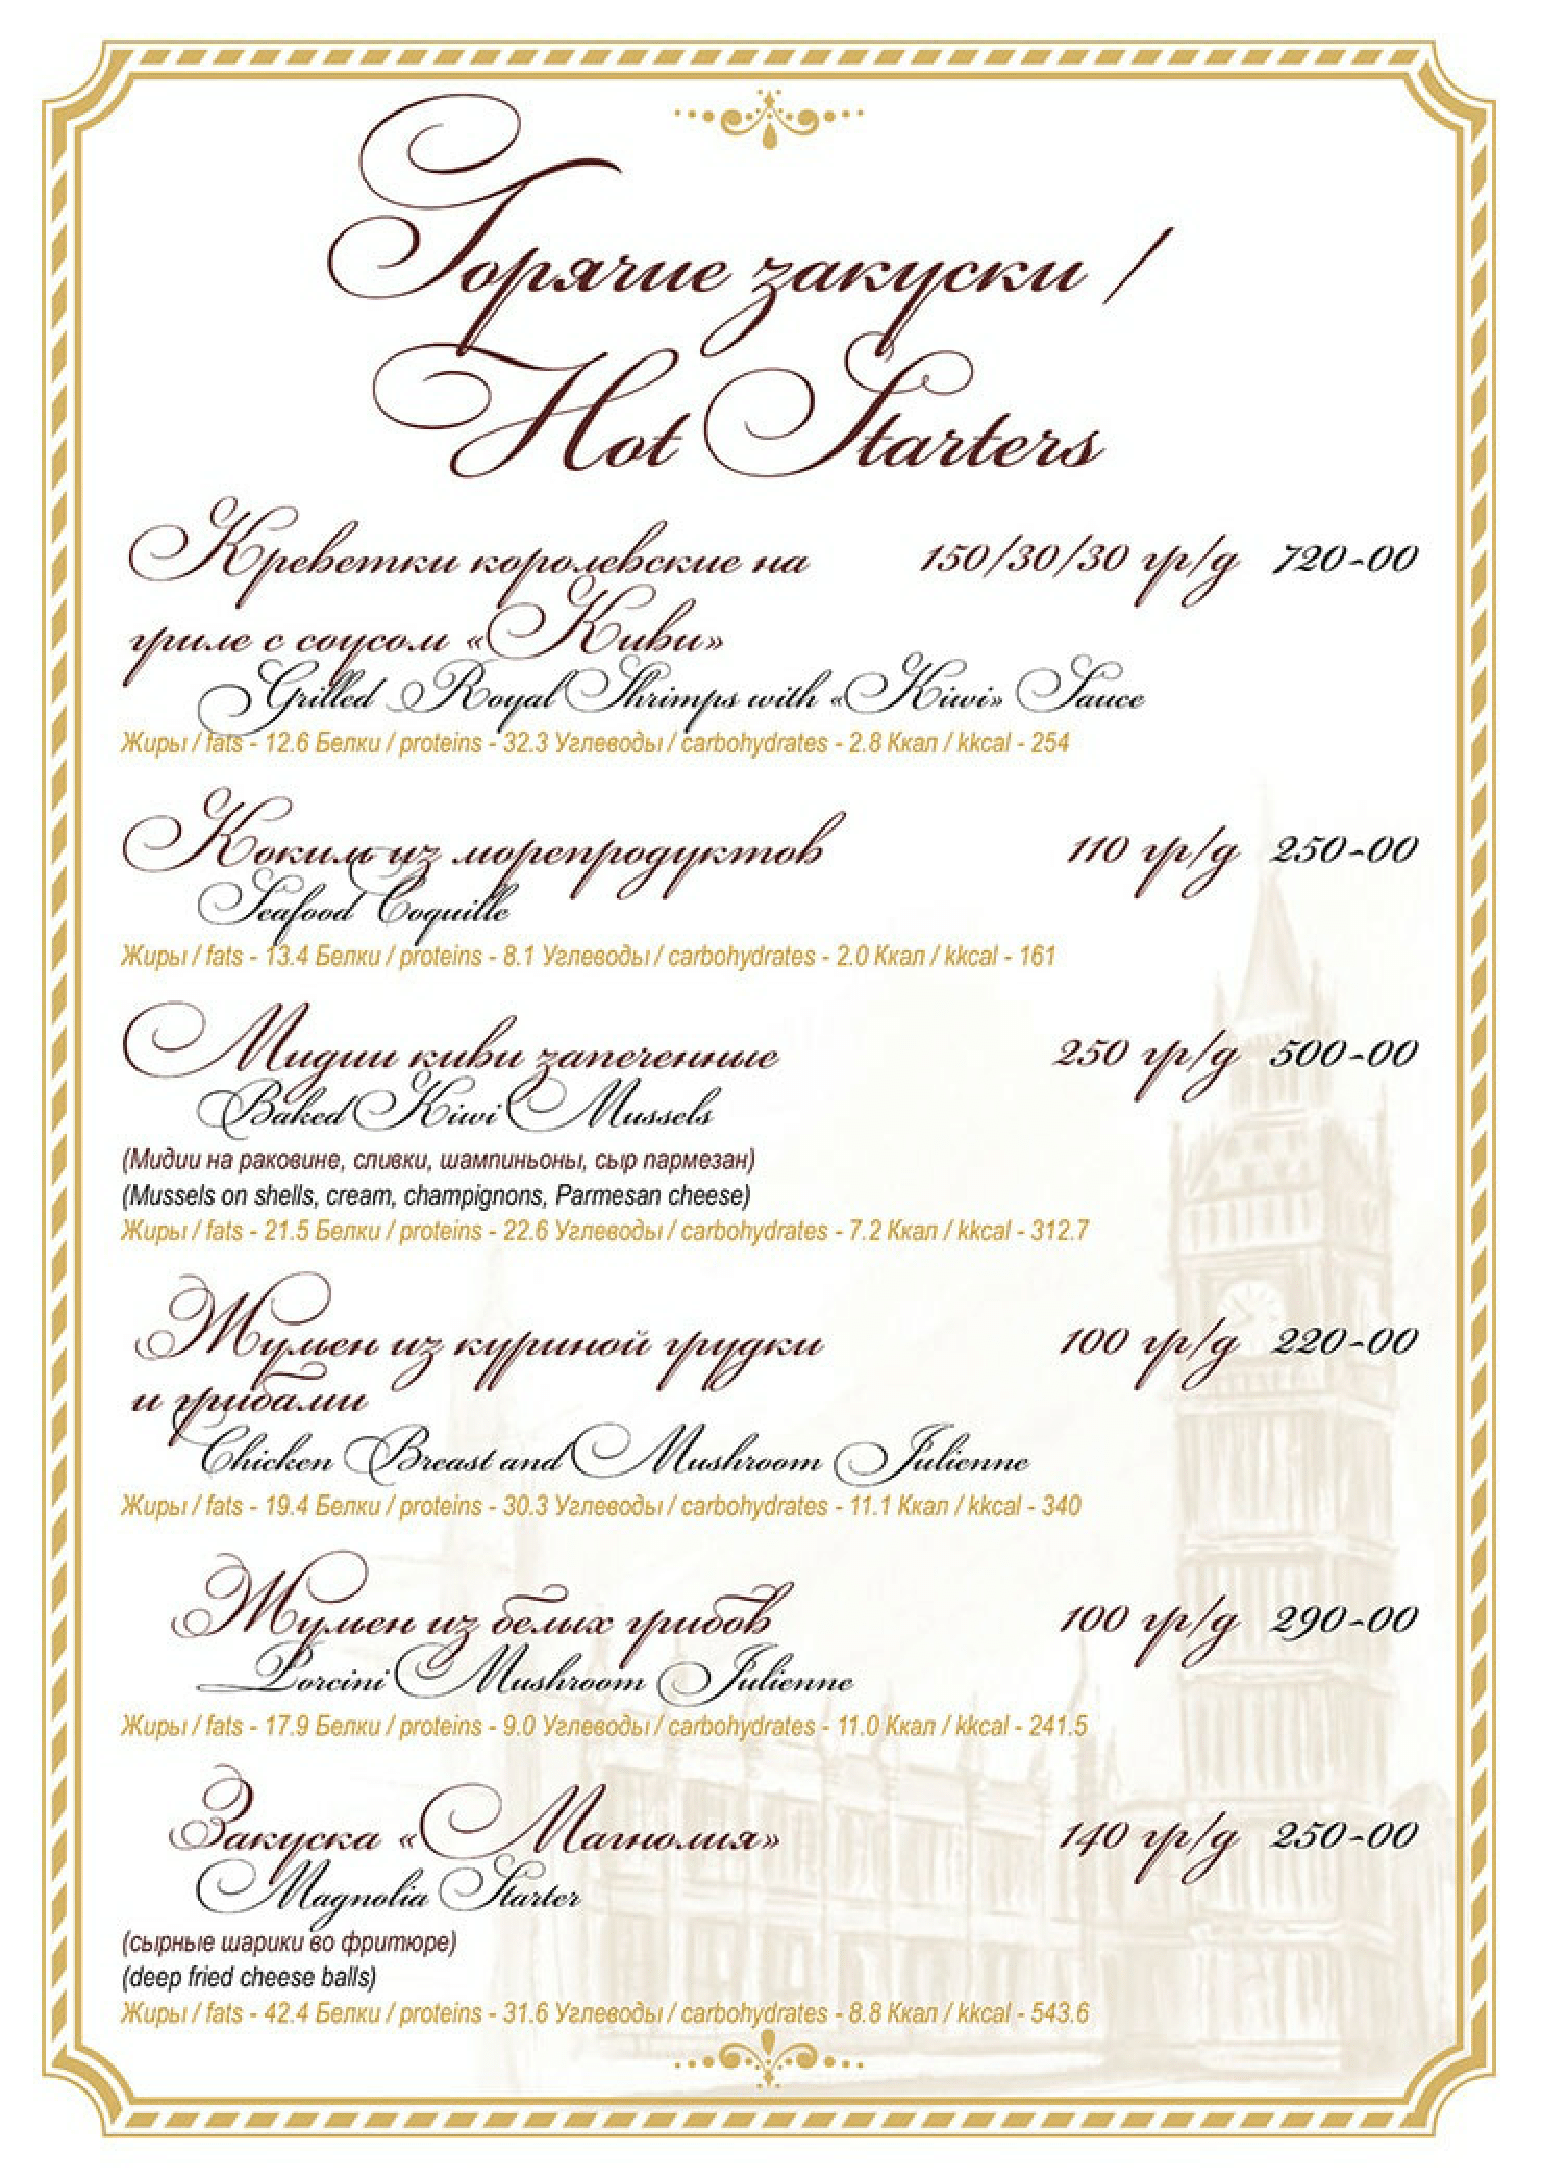 Горячие закуски /
Hot Starters
Креветки королевские на 150/30/30 гр/g 720-00
гриле с соусом «Киви»
Grilled Royal Shrimps with «Kiwi» Sauce
Жиры / fats - 12.6 Белки / proteins - 32.3 Углеводы / carbohydrates - 2.8 Ккал / kkcal - 254
Кокиль из морепродуктов 110 гр/g 250-00
Seafood Coquille
Жиры / fats - 13.4 Белки / proteins - 8.1 Углеводы / carbohydrates - 2.0 Ккал / kkcal - 161
Мидии киви запеченные 250 гр/g 500-00
Baked Kiwi Mussels
(Мидии на раковине, сливки, шампиньоны, сыр пармезан)
(Mussels on shells, cream, champignons, Parmesan cheese)
Жиры / fats - 21.5 Белки / proteins - 22.6 Углеводы / carbohydrates - 7.2 Ккал / kkcal - 312.7
Жульен из куриной грудки 100 гр/g 220-00
и грибами
Chicken Breast and Mushroom Julienne
Жиры / fats - 19.4 Белки / proteins - 30.3 Углеводы / carbohydrates - 11.1 Ккал / kkcal - 340
Жульен из белых грибов 100 гр/g 290-00
Porcini Mushroom Julienne
Жиры / fats - 17.9 Белки / proteins - 9.0 Углеводы / carbohydrates - 11.0 Ккал / kkcal - 241.5
Закуска «Магнолия» 140 гр/g 250-00
Magnolia Starter
(сырные шарики во фритюре)
(deep fried cheese balls)
Жиры / fats - 42.4 Белки / proteins - 31.6 Углеводы / carbohydrates - 8.8 Ккал / kkcal - 543.6